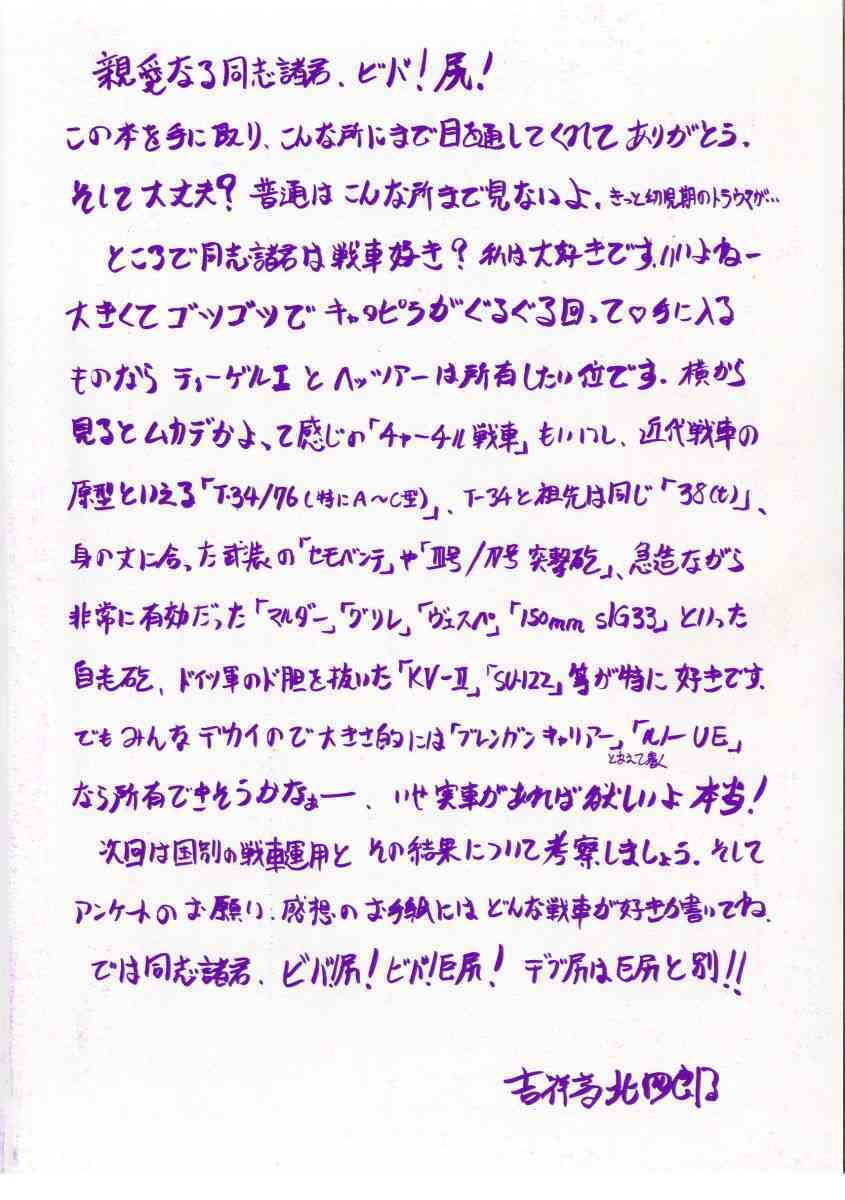 親愛なる同志諸君、ビバ!尻!
この本を手に取り、こんな所にまで目を通してくれてありがとう。
そして大丈夫?普通はこんな所まで見ないよ。きっと幼児期のトラウマが…
ところで同志諸君は戦車好き?私は大好きです。いいよねー
大きくてゴツゴツでキャタピラがぐるぐる回って♡手に入る
ものならティーゲルⅠとヘッツァーは所有したい位です。横から
見るとムカデかよ、って感じの「チャーチル戦車」もいいし、近代戦車の
原型といえる「T-34/76(特にA〜C型)」、T-34と祖先は同じ「38(t)」、
身の丈に合った武装の「セモベンテ」や「Ⅲ号/Ⅳ号突撃砲」、急造ながら
非常に有効だった「マルダー」「グリレ」「ヴェスペ」「150mm sIG33」といった
自走砲、ドイツ軍のド胆を抜いた「KV-Ⅱ」「SU-122」等が特に好きです。
でもみんなデカイので大きさ的には「ブレンガンキャリアー」「ルノーUE」
とあえて書く
なら所有できそうかなぁー、いや実車があれば欲しいよ本当!
次回は国別の戦車運用とその結果について考察しましょう。そして
アンケートのお願い。感想のお手紙にはどんな戦車が好きか書いてね。
では同志諸君、ビバ!尻!ビバ!巨尻!デブ尻は巨尻と別!!
吉祥寺北四郎